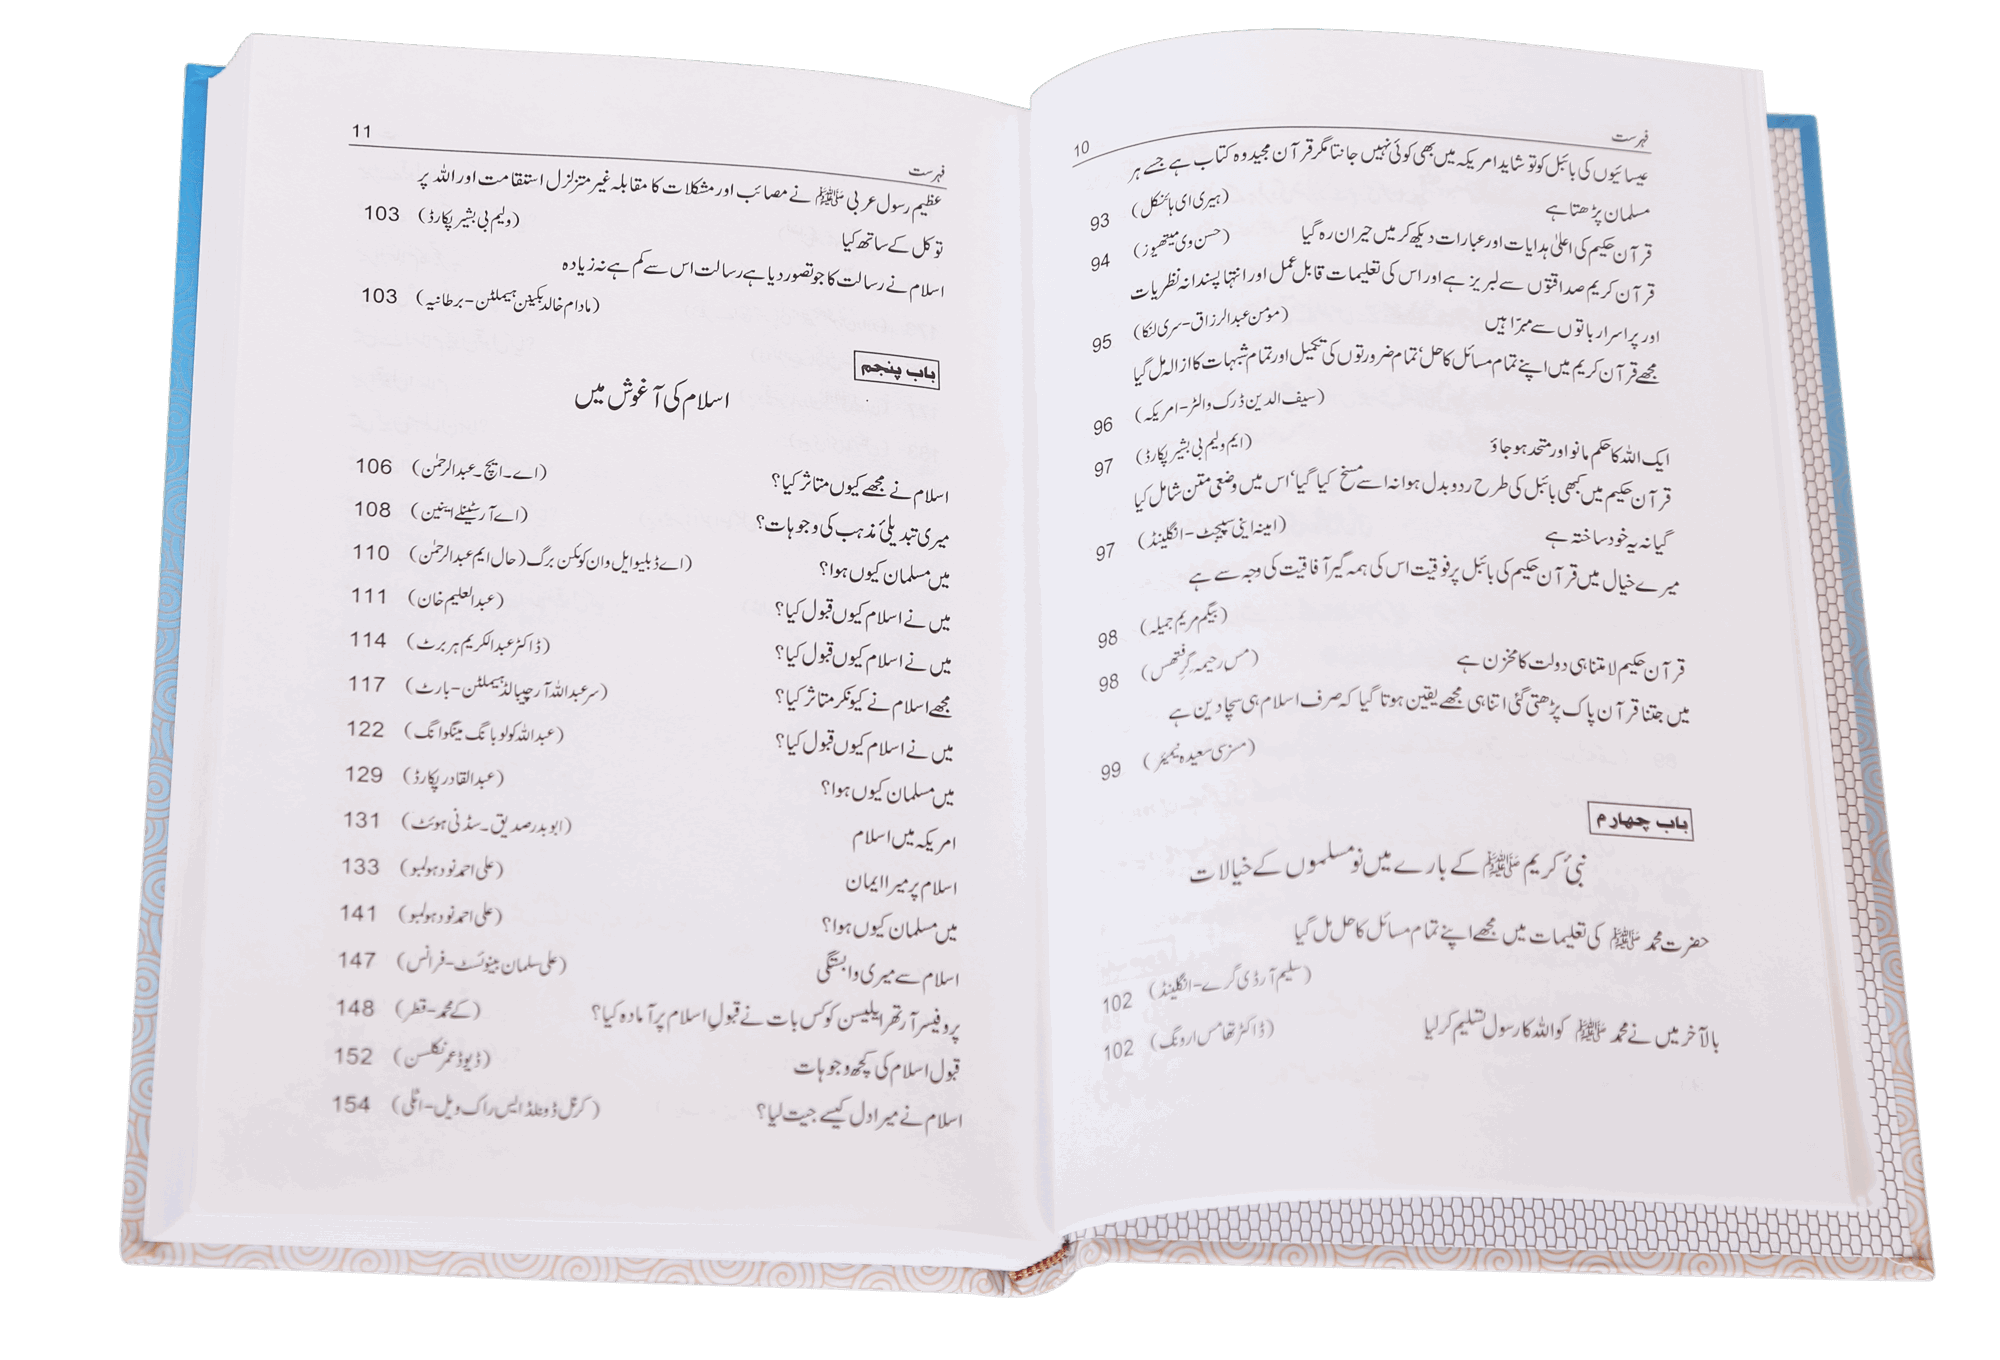 فہرست 10
عیسائیوں کی بائبل کو تو شاید امریکہ میں بھی کوئی نہیں جانتا مگر قرآن مجید وہ کتاب ہے جسے ہر
مسلمان پڑھتا ہے (ہیری ای ہائنکل) 93
قرآن حکیم کی اعلیٰ ہدایات اور عبارات دیکھ کر میں حیران رہ گیا (حسن وی میتھیوز) 94
قرآن کریم صداقتوں سے لبریز ہے اور اس کی تعلیمات قابل عمل اور انتہا پسندانہ نظریات
اور پراسرار باتوں سے مبرّا ہیں (مومن عبدالرزاق-سری لنکا) 95
مجھے قرآن کریم میں اپنے تمام مسائل کا حل' تمام ضرورتوں کی تکمیل اور تمام شبہات کا ازالہ مل گیا
(سیف الدین ڈرک والٹر-امریکہ) 96
ایک اللہ کا حکم مانو اور متحد ہو جاؤ (ایم ولیم بی بشیر پکارڈ) 97
قرآن حکیم میں کبھی بائبل کی طرح ردوبدل ہوا نہ اسے مسخ کیا گیا' اس میں وضعی متن شامل کیا
گیا نہ یہ خود ساختہ ہے (امینہ اینی سپیجٹ-انگلینڈ) 97
میرے خیال میں قرآن حکیم کی بائبل پر فوقیت اس کی ہمہ گیر آفاقیت کی وجہ سے ہے
(بیگم مریم جمیلہ) 98
قرآن حکیم لامتناہی دولت کا مخزن ہے (مس رحیمہ گرفتھس) 98
میں جتنا قرآن پاک پڑھتی گئی اتنا ہی مجھے یقین ہوتا گیا کہ صرف اسلام ہی سچا دین ہے
(مسز سی سعیدہ نیمیئر) 99
باب چهارم
نبیٔ کریم ﷺ کے بارے میں نو مسلموں کے خیالات
حضرت محمد ﷺ کی تعلیمات میں مجھے اپنے تمام مسائل کا حل مل گیا
(سلیم آر ڈی گرے-انگلینڈ) 102
بالآخر میں نے محمد ﷺ کو اللہ کا رسول تسلیم کر لیا (ڈاکٹر تھامس ارونگ) 102
فہرست 11
عظیم رسول عربی ﷺ نے مصائب اور مشکلات کا مقابلہ غیر متزلزل استقامت اور اللہ پر
توکل کے ساتھ کیا (ولیم بی بشیر پکارڈ) 103
اسلام نے رسالت کا جو تصور دیا ہے رسالت اس سے کم ہے نہ زیادہ
(مادام خالد بکینن ہیملٹن-برطانیہ) 103
باب پنجم
اسلام کی آغوش میں
اسلام نے مجھے کیوں متاثر کیا؟ (اے۔ایچ۔عبدالرحمٰن) 106
میری تبدیلیٔ مذہب کی وجوہات؟ (اے آر سٹینلے اینین) 108
میں مسلمان کیوں ہوا؟ (اے ڈبلیو ایل وان کوکن برگ (حال ایم عبدالرحمٰن) 110
میں نے اسلام کیوں قبول کیا؟ (عبدالعلیم خان) 111
میں نے اسلام کیوں قبول کیا؟ (ڈاکٹر عبدالکریم ہربرٹ) 114
مجھے اسلام نے کیونکر متاثر کیا؟ (سر عبداللہ آرچیبالڈ ہیملٹن-بارٹ) 117
میں نے اسلام کیوں قبول کیا؟ (عبداللہ کولوبانگ مینگوانگ) 122
میں مسلمان کیوں ہوا؟ (عبدالقادر پکارڈ) 129
امریکہ میں اسلام (ابو بدر صدیق۔سڈنی ہوئٹ) 131
اسلام پر میرا ایمان (علی احمد نود ہولمبو) 133
میں مسلمان کیوں ہوا؟ (علی احمد نود ہولمبو) 141
اسلام سے میری وابستگی (علی سلمان بینوئسٹ-فرانس) 147
پروفیسر آرتھر ایلیسن کو کس بات نے قبولِ اسلام پر آمادہ کیا؟ (کے محمد-قطر) 148
قبول اسلام کی کچھ وجوہات (ڈیوڈ عمر نکلسن) 152
اسلام نے میرا دل کیسے جیت لیا؟ (کرنل ڈونلڈ ایس راک ویل-اٹلی) 154